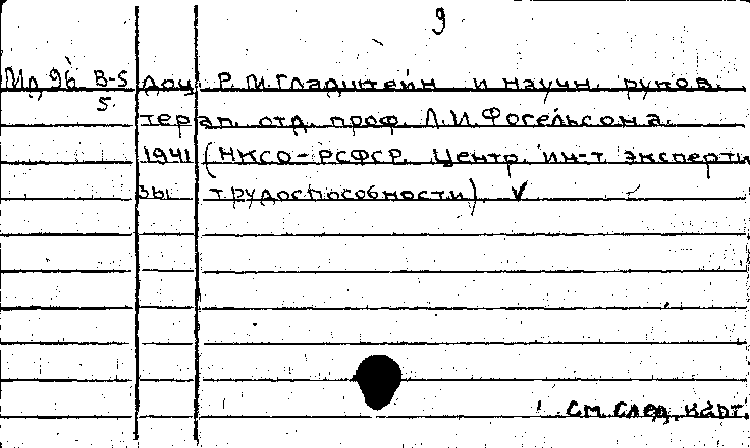 9
Мд 96 В-5 доц. Р. И. Гладштейн и научн. руков.
5 терап. отд. проф. Л. И. Фогельсона.
1941 (НКСО-РСФСР. Центр. ин-т эксперти
зы трудоспособности). V
См. след. карт.